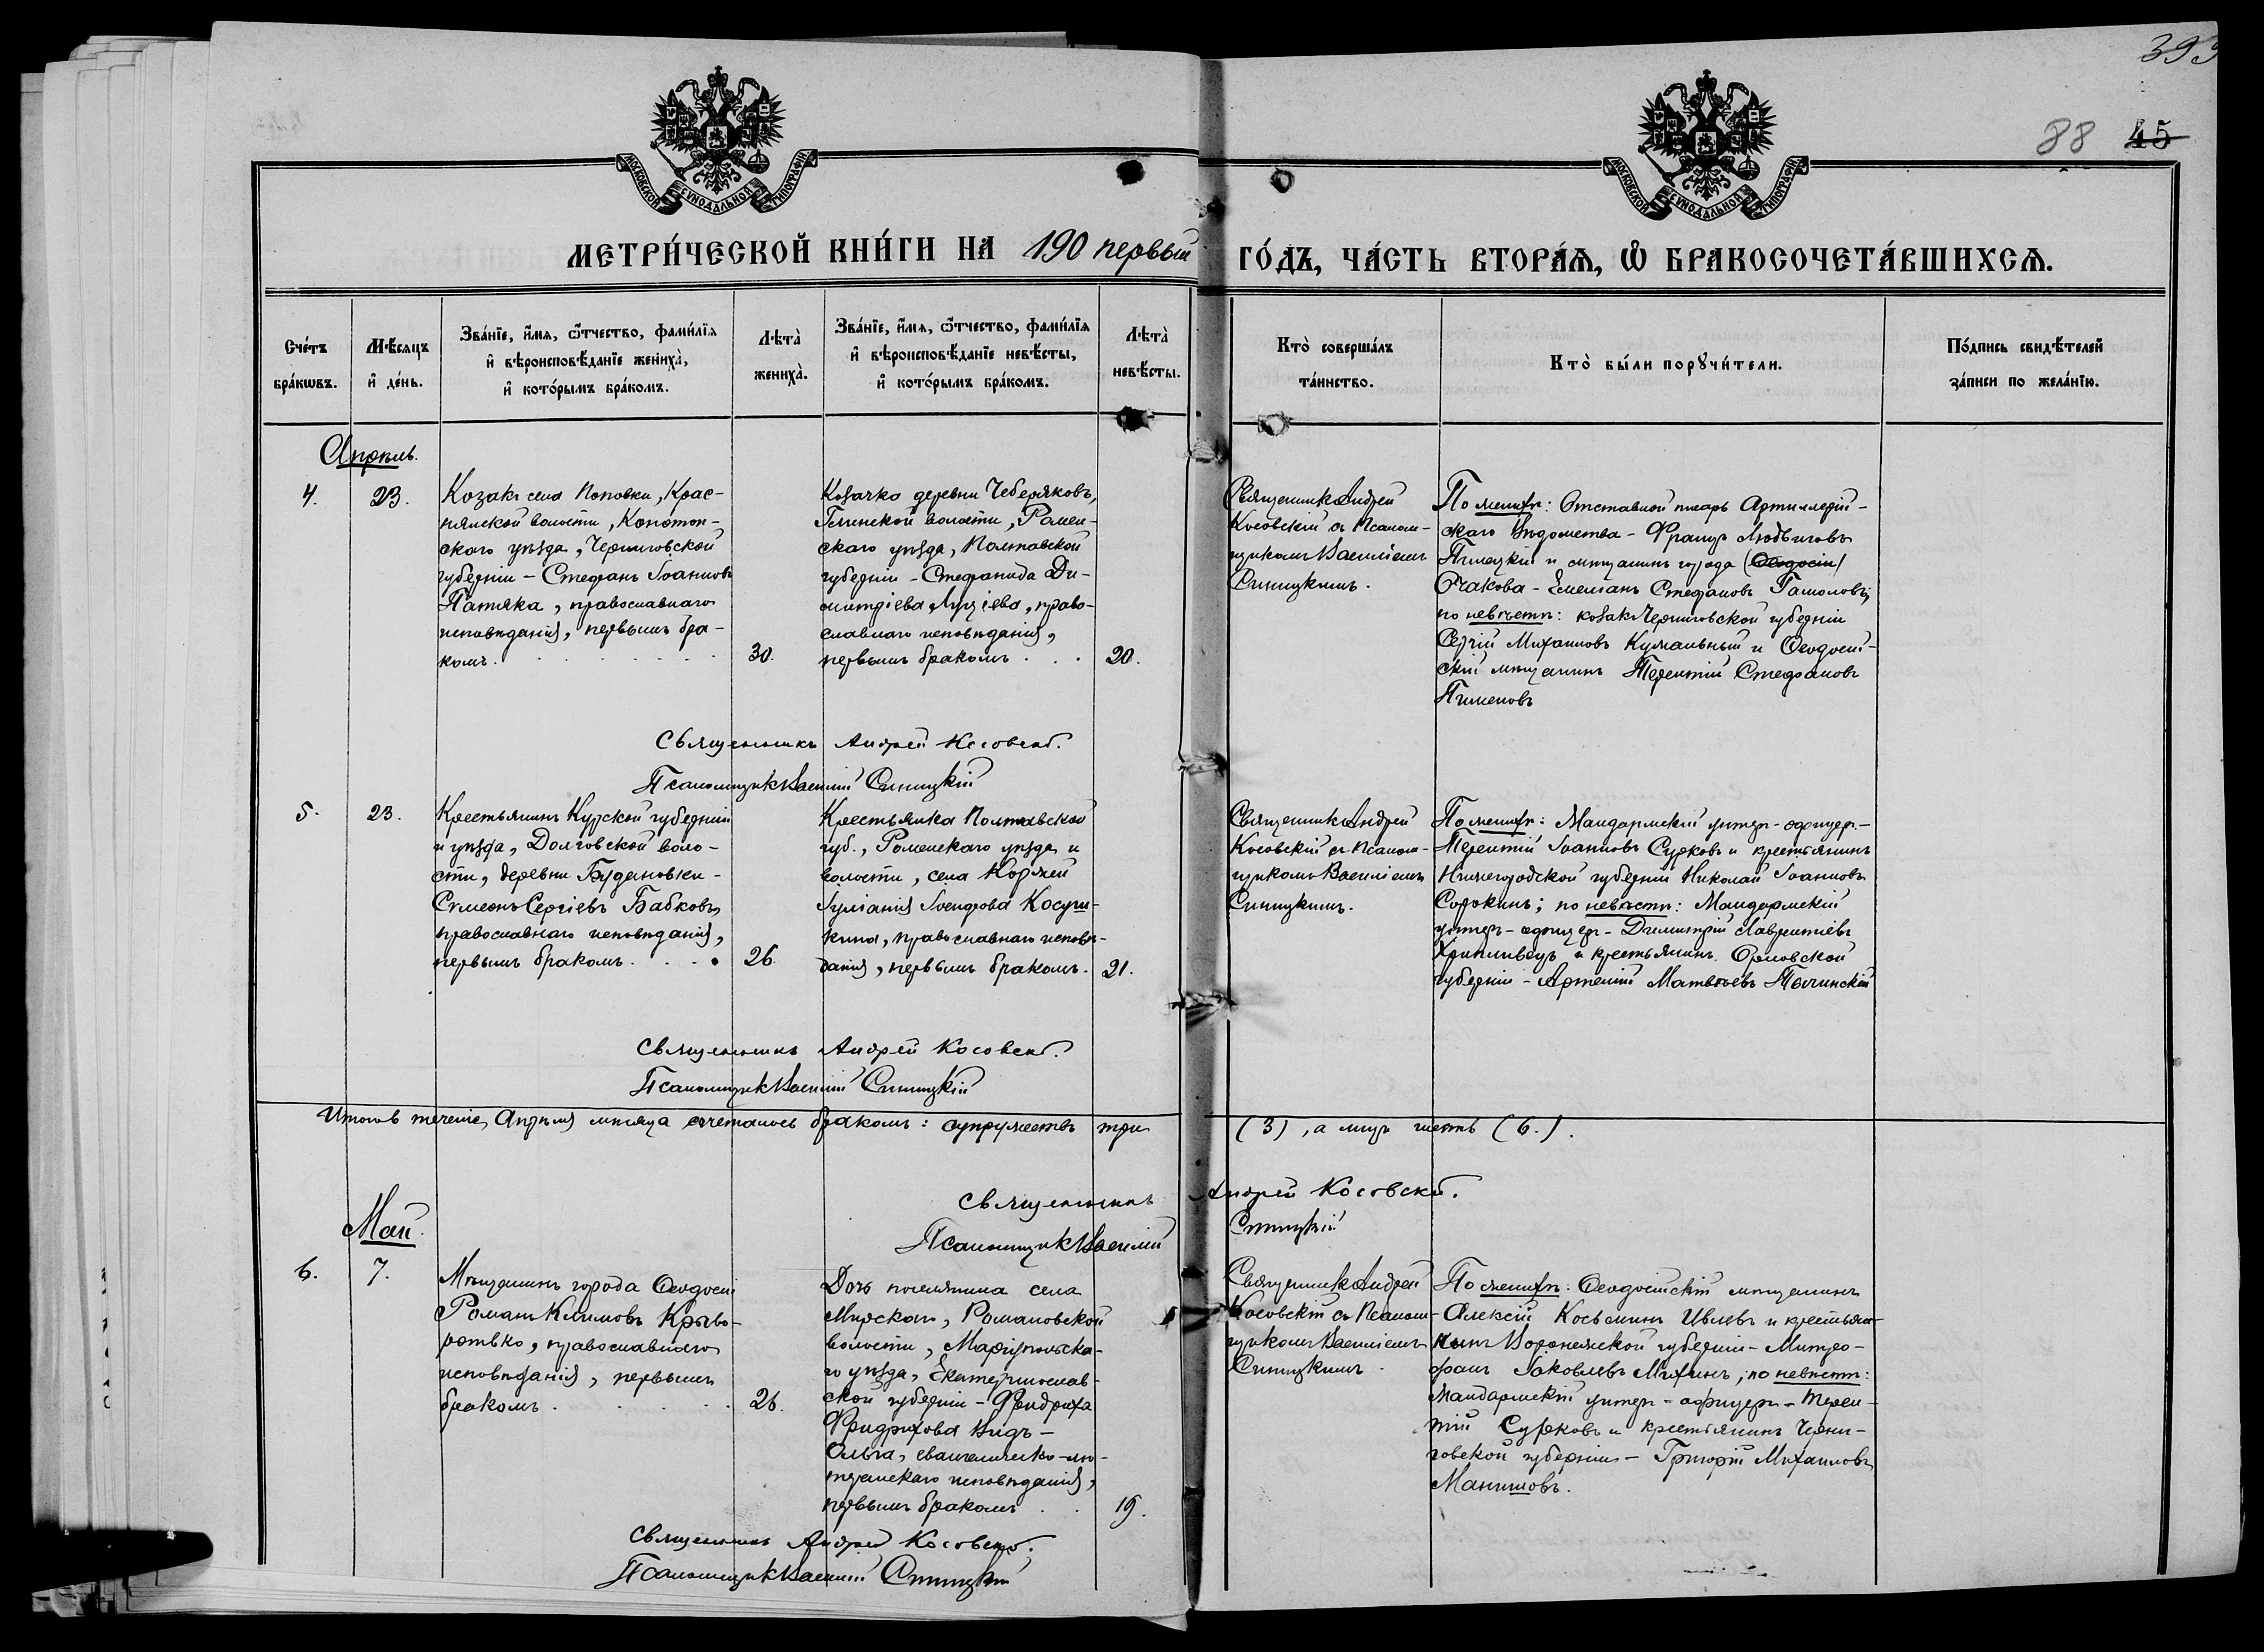 393
88 45
МОСКОВСКОЙ СѴНОДАЛЬНОЙ ТИПОГРАФІИ
МОСКОВСКОЙ СѴНОДАЛЬНОЙ ТИПОГРАФІИ
МЕТРИ́ЧЕСКОЙ КНИ́ГИ НА 190 первый ГО́ДЪ, ЧА́СТЬ ВТОРА́Ѧ, Ѽ БРАКОСОЧЕТА́ВШИХСѦ.
Сче́тъ
бра́кѡвъ.
Мѣ́сяцъ
и҆ де́нь.
Зва́нїе, и҆́мя, ѻ҆́тчество, фами́лїя
и҆ вѣроисповѣ́данїе жениха̀,
и҆ кото́рымъ бра́комъ.
Лѣта̀
жениха̀.
Зва́нїе, и҆́мя, ѻ҆́тчество, фами́лїя
и҆ вѣроисповѣ́данїе невѣ́сты,
и҆ кото́рымъ бра́комъ.
Лѣта̀
невѣ́сты.
Кто̀ соверша́лъ
та́инство.
Кто̀ бы́ли порꙋчи́тели.
По́дпись свидѣ́телей
за́писи по жела́нїю.
Апрѣль.
4.
23.
Козакъ села Поповки, Крас-
нянской волости, Конотоп-
скаго уѣзда, Черниговской
губерніи - Стефанъ Іоанновъ
Патяка, православнаго
исповѣданія, первымъ бра-
комъ.
30.
Козачка деревни Чеберяковъ,
Глинской волости, Ромен-
скаго уѣзда, Полтавской
губерніи - Стефанида Ди-
митріева Луціева, право-
славнаго исповѣданія,
первымъ бракомъ . . .
20.
Священникъ Андрей
Косовскій съ Псалом-
щикомъ Василіемъ
Синицкимъ.
По женихѣ: Отставной писарь Артиллерій-
скаго Вѣдомства - Францъ Людвиговъ
и мѣщанинъ города (Ѳеодосіи)
Очакова - Емеліанъ Стефановъ
по невѣстѣ: козакъ Черниговской губерніи
Сергій Михаиловъ и Ѳеодосій-
скій мѣщанинъ Терентій Стефановъ
Пименовъ
Священникъ Андрей Косовскій.
Псаломщикъ Василій Синицкій
5.
23.
Крестьянинъ Курской губерніи
и уѣзда, Долговской воло-
сти, деревни Будановки -
Сѵмеонъ Сергіевъ Бабковъ,
православнаго исповѣданія,
первымъ бракомъ. . . .
26.
Крестьянка Полтавской
губ., Роменскаго уѣзда и
волости, села Коржей
Іуліанія Косуш-
кина, православнаго исповѣ-
данія, первымъ бракомъ.
21.
Священникъ Андрей
Косовскій съ Псалом-
щикомъ Василіемъ
Синицкимъ.
По женихѣ: Жандармскій унтеръ-офицеръ -
Терентій Іоанновъ Сурковъ и крестьянинъ
Нижегородской губерніи Николай Іоанновъ
Сорокинъ; по невѣстѣ: Жандармскій
унтеръ-офицеръ - Димитрій Лаврентіевъ
Хрипливецъ и крестьянинъ Орловской
губерніи - Артемій Матвѣевъ
Священникъ Андрей Косовскій.
Псаломщикъ Василій Синицкій
Итого въ теченіе Апрѣля мѣсяца сочеталось бракомъ: супружествъ три (3), а лицъ шесть (6.).
Священникъ Андрей Косовскій.
Псаломщикъ Василій Синицкій
Май.
6.
7.
Мѣщанинъ города Ѳеодосіи
Романъ Климовъ Крыво-
ротько, православнаго
исповѣданія, первымъ
бракомъ.
26.
Дочь поселянина села
Мирскаго, Романовской
волости, Маріупольска-
го уѣзда, Екатеринослав-
ской губерніи - Фридриха
Фридрихова Видъ -
Ольга, евангелическо-лю-
теранскаго исповѣданія,
первымъ бракомъ . .
19.
Священникъ Андрей
Косовскій съ Псалом-
щикомъ Василіемъ
Синицкимъ.
По женихѣ: Ѳеодосійскій мѣщанинъ
Алексій Косьминъ Ивлевъ и крестья-
нинъ Воронежской губерніи - Митро-
фанъ Іаковлевъ Михинъ; по невѣстѣ:
Жандармскій унтеръ-офицеръ - Терен-
тій Сурковъ и крестьянинъ Черни-
говской губерніи - Григорій Михаиловъ
Манишовъ.
Священникъ Андрей Косовскій.
Псаломщикъ Василій Синицкій